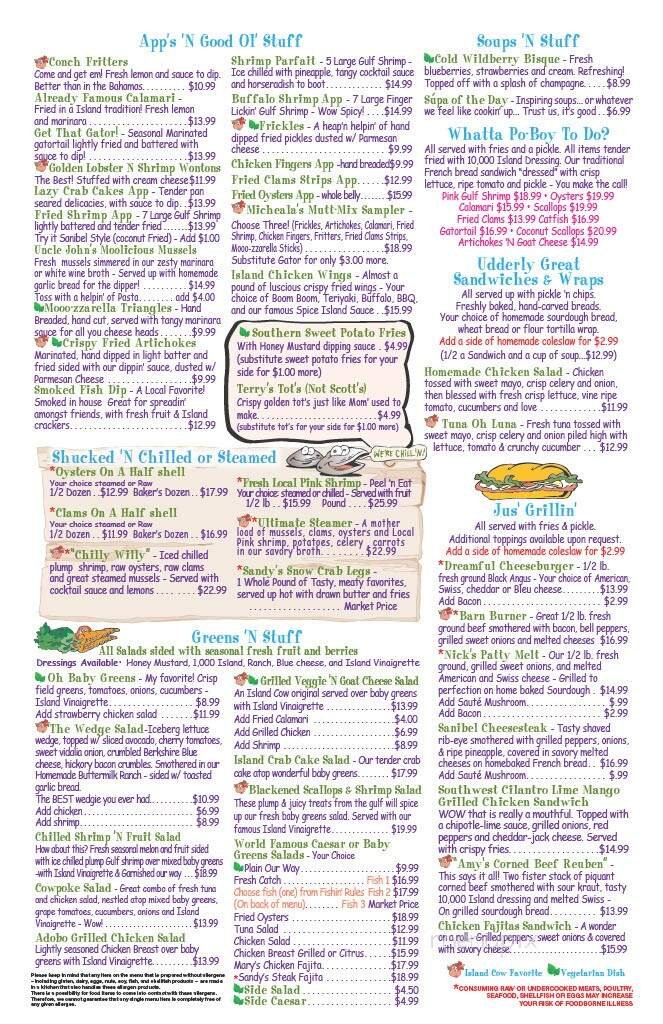 App's 'N Good Ol' Stuff
Conch Fritters
Come and get em! Fresh lemon and sauce to dip.
Better than in the Bahamas........... $10.99
Already Famous Calamari -
Fried in a Island tradition! Fresh lemon
and marinara ........................$13.99
Get That Gator! - Seasonal Marinated
gatortail lightly fried and battered with
sauce to dip! ........................$13.99
Golden Lobster N Shrimp Wontons
The Best! Stuffed with cream cheese$11.99
Lazy Crab Cakes App - Tender pan
seared delicacies, with sauce to dip. .$13.99
Fried Shrimp App - 7 Large Gulf Shrimp
lightly battered and tender fried......$13.99
Try it Sanibel Style (coconut Fried) - Add $1.00
Uncle John's Moolicious Mussels
Fresh mussels simmered in our zesty marinara
or white wine broth - Served up with homemade
garlic bread for the dipper! ............$14.99
Toss with a helpin' of Pasta........ add $4.00
Moo-zzarella Triangles - Hand
Breaded, hand cut, served with tangy marinara
sauce for all you cheese heads ......$9.99
Crispy Fried Artichokes
Marinated, hand dipped in light batter and
fried sided with our dippin' sauce, dusted w/
Parmesan Cheese ....................$9.99
Smoked Fish Dip - A Local Favorite!
Smoked in house Great for spreadin'
amongst friends, with fresh fruit & Island
crackers..............................$12.99
Shrimp Parfait - 5 Large Gulf Shrimp -
Ice chilled with pineapple, tangy cocktail sauce
and horseradish to boot.............. $14.99
Buffalo Shrimp App - 7 Large Finger
Lickin' Gulf Shrimp - Wow Spicy! ....$14.99
Frickles - A heap'n helpin' of hand
dipped fried pickles dusted w/ Parmesan
cheese ................................ $9.99
Chicken Fingers App -hand breaded$9.99
Fried Clams Strips App......$12.99
Fried Oysters App - whole belly...... $15.99
Micheala's Mutt-Mix Sampler -
Choose Three! (Frickles, Artichokes, Calamari, Fried
Shrimp, Chicken Fingers, Fritters, Fried Clams Strips,
Mooo-zzarella Sticks) ....................$18.99
Substitute Gator for only $3.00 more.
Island Chicken Wings - Almost a
pound of luscious crispy fried wings - Your
choice of Boom Boom, Teriyaki, Buffalo, BBQ,
and our famous Spice Island Sauce ..$15.99
Southern Sweet Potato Fries
With Honey Mustard dipping sauce . $4.99
(substitute sweet potato fries for your
side for $1.00 more)
Terry's Tot's (Not Scott's)
Crispy golden tot's just like Mom' used to
make................................$4.99
(substitute tot's for your side for $1.00 more)
Shucked 'N Chilled or Steamed
WE'RE CHILL'N!
*Oysters On A Half shell
Your choice steamed or Raw
1/2 Dozen . .$12.99 Baker's Dozen. . $17.99
*Clams On A Half shell
Your choice steamed or Raw
1/2 Dozen . . $11.99 Baker's Dozen . . $16.99
*"Chilly Willy" - Iced chilled
plump shrimp, raw oysters, raw clams
and great steamed mussels - Served with
cocktail sauce and lemons ........ $22.99
*Fresh Local Pink Shrimp - Peel 'n Eat
Your choice: steamed or chilled - Served with fruit
1/2 lb . . $15.99 Pound . . . . $25.99
*Ultimate Steamer - A mother
load of mussels, clams, oysters and Local
Pink shrimp, potatoes, celery, carrots
in our savory broth........ $22.99
*Sandy's Snow Crab Legs -
1 Whole Pound of Tasty, meaty favorites,
served up hot with drawn butter and fries
.................... Market Price
Greens 'N Stuff
All Salads sided with seasonal fresh fruit and berries
Dressings Available· Honey Mustard, 1,000 Island, Ranch, Blue cheese, and Island Vinaigrette
Oh Baby Greens - My favorite! Crisp
field greens, tomatoes, onions, cucumbers -
Island Vinaigrette....................$8.99
Add strawberry chicken salad ....... $11.99
The Wedge Salad-Iceberg lettuce
wedge, topped w/ sliced avocado, cherry tomatoes,
sweet vidalia onion, crumbled Berkshire Blue
cheese, hickory bacon crumbles. Smothered in our
Homemade Buttermilk Ranch - sided w/ toasted
garlic bread.
The BEST wedgie you ever had..........$10.99
Add chicken..........................$6.99
Add shrimp...........................$8.99
Chilled Shrimp 'N Fruit Salad
How about this? Fresh seasonal melon and fruit sided
with ice chilled plump Gulf shrimp over mixed baby greens
-with Island Vinaigrette & Garnished our way ... $18.99
Cowpoke Salad - Great combo of fresh tuna
and chicken salad, nestled atop mixed baby greens,
grape tomatoes, cucumbers, onions and Island
Vinaigrette - Wow! ....................$13.99
Adobo Grilled Chicken Salad
Lightly seasoned Chicken Breast over baby
greens with Island Vinaigrette.......$13.99
Please keep in mind that any item on the menu that is prepared without allergens
- including gluten, dairy, eggs, nuts, soy, fish, and shellfish products - are made
in a kitchen that also handles these allergen products.
There is a possibility for food items to come into contact with these allergens.
Therefore, we cannot guarantee that any single menu item is completely free of
any given allergen.
Grilled Veggie 'N Goat Cheese Salad
An Island Cow original served over baby greens
with Island Vinaigrette ..............$13.99
Add Fried Calamari ..................$4.00
Add Grilled Chicken..................$6.99
Add Shrimp ..........................$8.99
Island Crab Cake Salad - Our tender crab
cake atop wonderful baby greens........ $17.99
Blackened Scallops & Shrimp Salad
These plump & juicy treats from the gulf will spice
up our fresh baby greens salad. Served with our
famous Island Vinaigrette.............. $19.99
World Famous Caesar or Baby
Greens Salads - Your Choice
Plain Our Way........................$9.99
Fresh Catch................ Fish 1 $16.99
Choose fish (one) from Fishin' Rules Fish 2 $17.99
(On back of menu)........ Fish 3 Market Price
Fried Oysters ........................$18.99
Tuna Salad ..........................$12.99
Chicken Salad ........................$11.99
Chicken Breast Grilled or Citrus......$15.99
Mary's Chicken Fajita................$17.99
*Sandy's Steak Fajita ................$18.99
Side Salad ..........................$4.50
Side Caesar..........................$4.99
Soups 'N Stuff
Cold Wildberry Bisque - Fresh
blueberries, strawberries and cream. Refreshing!
Topped off with a splash of champagne.....$8.99
Supa of the Day - Inspiring soups... or whatever
we feel like cookin' up... Trust us, it's good. .$6.99
Whatta Po-Boy To Do?
All served with fries and a pickle. All items tender
fried with 10,000 Island Dressing. Our traditional
French bread sandwich "dressed" with crisp
lettuce, ripe tomato and pickle - You make the call!
Pink Gulf Shrimp $18.99 • Oysters $19.99
Calamari $15.99 • Scallops $19.99
Fried Clams $13.99 Catfish $16.99
Gatortail $16.99 • Coconut Scallops $20.99
Artichokes 'N Goat Cheese $14.99
Udderly Great
Sandwiches & Wraps
All served up with pickle 'n chips.
Freshly baked, hand-carved breads.
Your choice of homemade sourdough bread,
wheat bread or flour tortilla wrap.
Add a side of homemade coleslaw for $2.99
(1/2 a Sandwich and a cup of soup...$12.99)
Homemade Chicken Salad - Chicken
tossed with sweet mayo, crisp celery and onion,
then blessed with fresh crisp lettuce, vine ripe
tomato, cucumbers and love ............$11.99
Tuna Oh Luna - Fresh tuna tossed with
sweet mayo, crisp celery and onion piled high with
lettuce, tomato & crunchy cucumber ... $12.99
Jus' Grillin'
All served with fries & pickle.
Additional toppings available upon request.
Add a side of homemade coleslaw for $2.99
*Dreamful Cheeseburger - 1/2 lb.
fresh ground Black Angus - Your choice of American,
Swiss, cheddar or Bleu cheese........$13.99
Add Bacon ..........................$2.99
*Barn Burner - Great 1/2 lb. fresh
ground beef smothered with bacon, bell peppers,
grilled sweet onions and melted cheeses $16.99
*Nick's Patty Melt - Our 1/2 lb. fresh
ground, grilled sweet onions, and melted
American and Swiss cheese - Grilled to
perfection on home baked Sourdough . $14.99
Add Sauté Mushroom....................$.99
Add Bacon ..........................$2.99
Sanibel Cheesesteak - Tasty shaved
rib-eye smothered with grilled peppers, onions,
& ripe pineapple, covered in savory melted
cheeses on homebaked French bread. . $16.99
Add Sauté Mushroom.................... $.99
Southwest Cilantro Lime Mango
Grilled Chicken Sandwich
WOW that is really a mouthful. Topped with
a chipotle-lime sauce, grilled onions, red
peppers and cheddar-jack cheese. Served
with crispy fries......................$14.99
*"Amy's Corned Beef Reuben" -
This says it all! Two fister stack of piquant
corned beef smothered with sour kraut, tasty
10,000 Island dressing and melted Swiss -
On grilled sourdough bread............$13.99
Chicken Fajitas Sandwich - A wonder
on a roll - Grilled peppers, sweet onions & covered
with savory cheese....................$15.99
Island Cow Favorite Vegetarian Dish
*CONSUMING RAW OR UNDERCOOKED MEATS, POULTRY,
SEAFOOD, SHELLFISH OR EGGS MAY INCREASE
YOUR RISK OF FOODBORNE ILLNESS